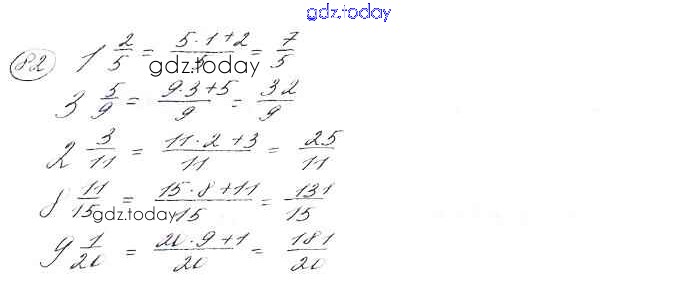 gdz.today
82) 1 2/5 = (5·1+2)/5 = 7/5
gdz.today
3 5/9 = (9·3+5)/9 = 32/9
2 3/11 = (11·2+3)/11 = 25/11
8 11/15 = (15·8+11)/15 = 131/15
gdz.today
9 1/20 = (20·9+1)/20 = 181/20